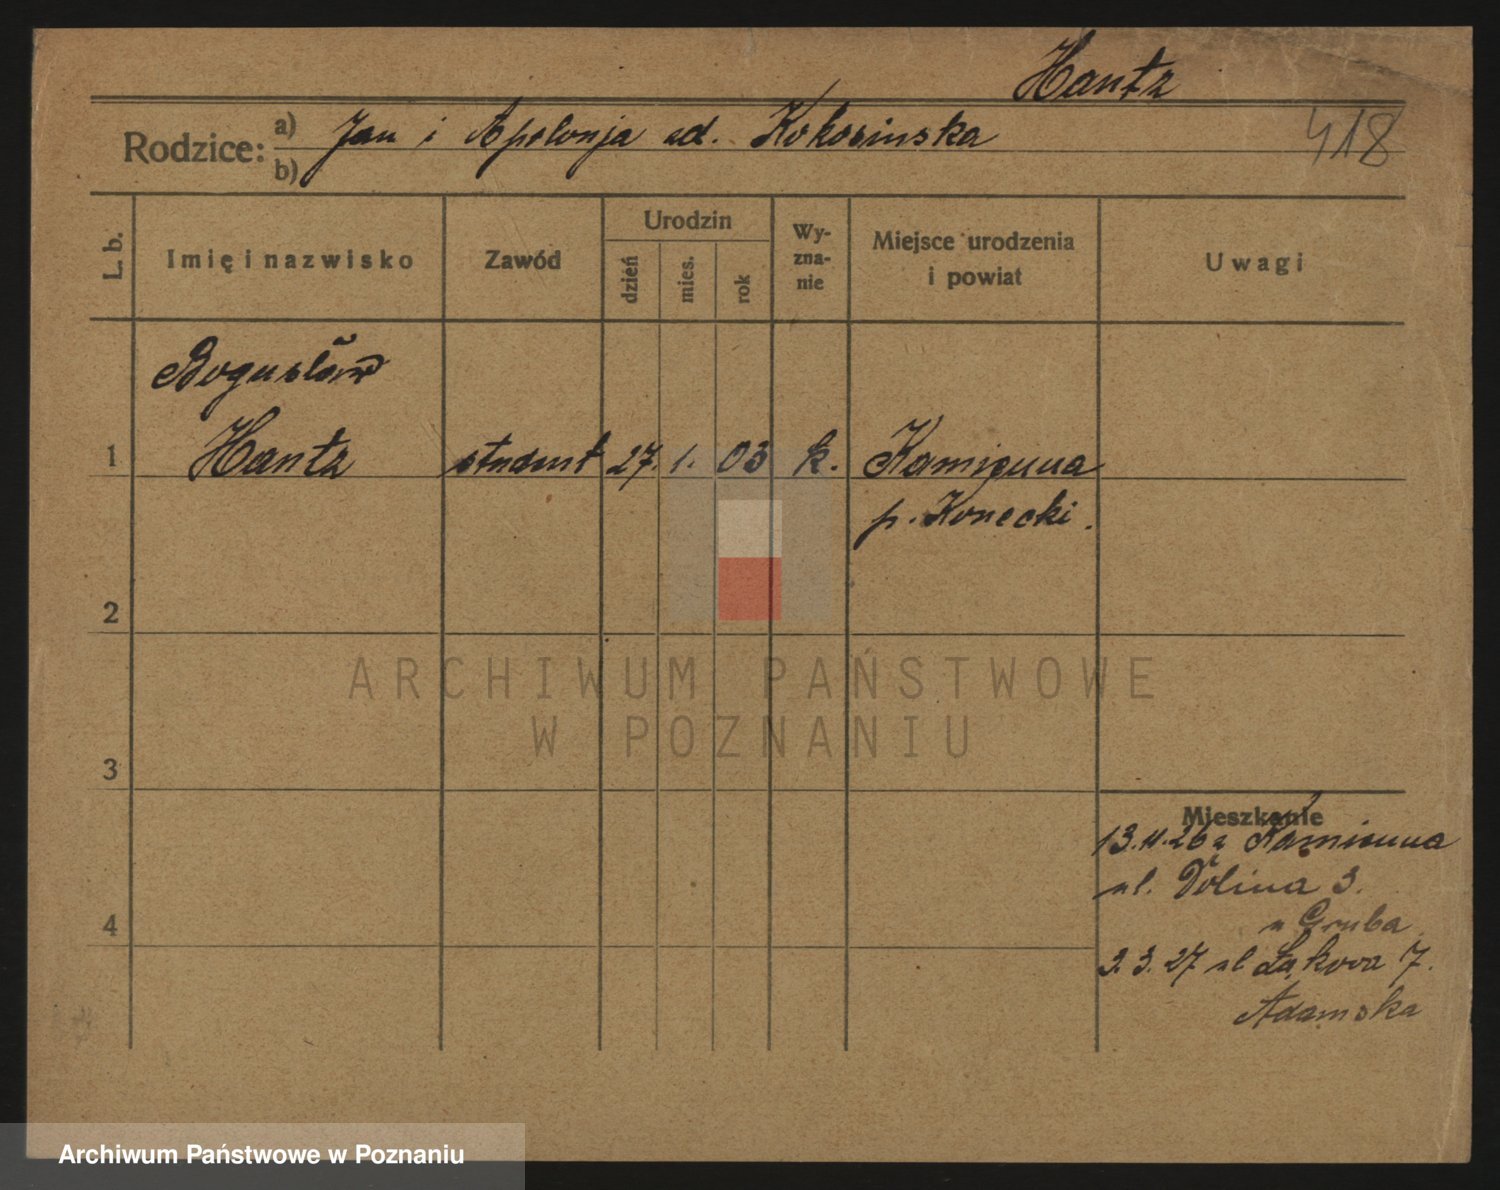 Hantz
Rodzice: a) Jan i Apolonja zd. Kokosinska
b)
418
L. b.
Imię i nazwisko
Zawód
Urodzin
dzień
mies.
rok
Wy-
zna-
nie
Miejsce urodzenia
i powiat
Uwagi
Bogusław
1 Hantz student 27. 1. 03 k. Kamienna
p. Konecki.
2
3
4
Mieszkanie
13.11.26 z Kamienna
ul. Dolina 3.
u Gruba
3.3.27 ul Łąkova 7.
Adamska
ARCHIWUM PAŃSTWOWE
W POZNANIU
Archiwum Państwowe w Poznaniu